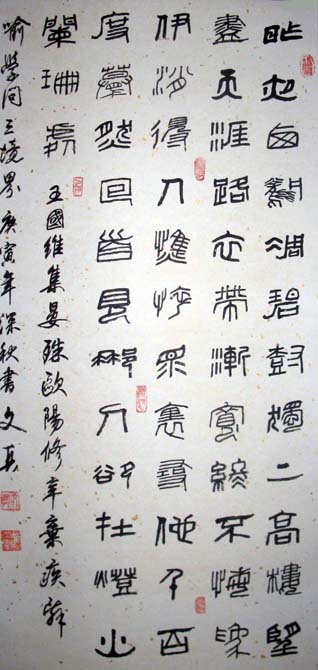 昨夜西風凋碧樹獨上高樓望
盡天涯路衣帶漸寬終不悔為
伊消得人憔悴眾裏尋他千百
度驀然回首見那人卻在燈火
闌珊處 王國維集晏殊歐陽修辛棄疾辭
喻學問三境界庚寅年深秋書文真